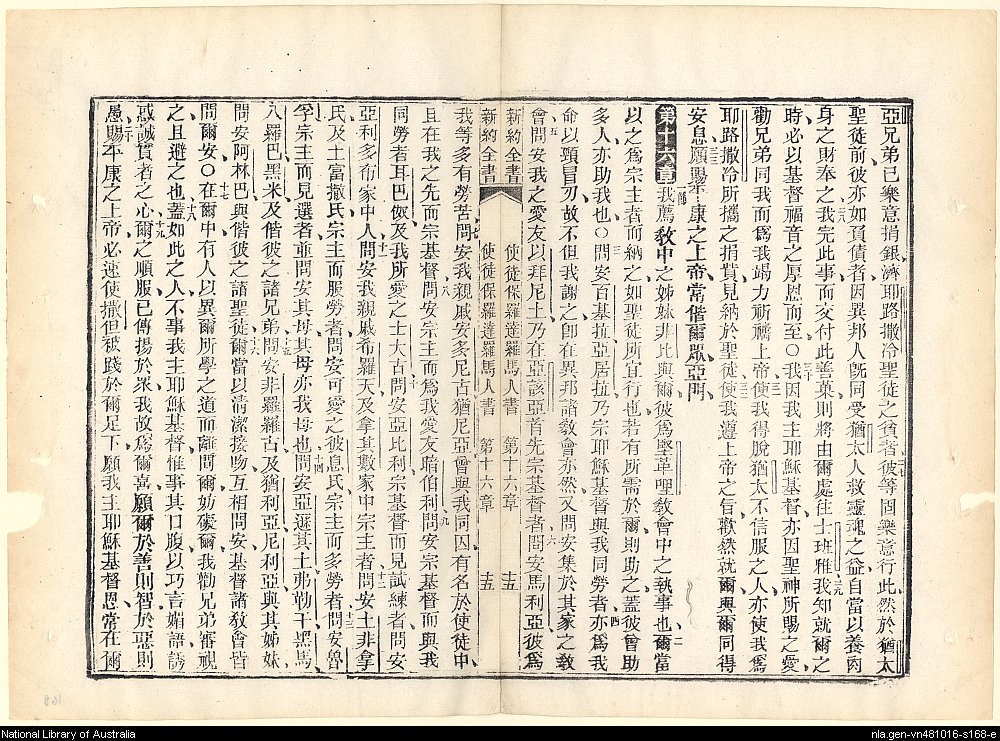 亞兄弟已樂意捐銀濟耶路撒冷聖徒之貧者彼等固樂意行此然於猶太
聖徒前彼亦如負債者因異邦人旣同受猶太人救靈魂之益自當以養肉
身之財奉之我完此事而交付此善菓則將由爾處往士班雅我知就爾之
時必以基督福音之厚恩而至○我因我主耶穌基督亦因聖神所賜之愛
勸兄弟同我而爲我竭力祈禱上帝使我得脫猶太不信服之人亦使我爲
耶路撒冷所攜之捐貲見納於聖徒使我遵上帝之旨歡然就爾與爾同得
安息願賜平康之上帝常偕爾眾亞門
第十六章 我薦敎中之姊妹非比與爾彼爲堅革哩敎會中之執事也爾當
以之爲宗主者而納之如聖徒所宜行也若有所需於爾則助之蓋彼曾助
多人亦助我也○問安百基拉亞居拉乃宗耶穌基督與我同勞者亦爲我
命以頸冒刃故不但我謝之卽在異邦諸敎會亦然又問安集於其家之敎
會問安我之愛友以拜尼土乃在亞該亞首先宗基督者問安馬利亞彼爲
新約全書 使徒保羅達羅馬人書 第十六章 十五
新約全書 使徒保羅達羅馬人書 第十六章 十五
我等多有勞苦問安我親戚安多尼古猶尼亞曾與我同囚有名於使徒中
且在我之先而宗基督問安宗主而爲我愛友暗伯利問安宗基督而與我
同勞者耳巴奴及我所愛之士大古問安亞比利宗基督而見試練者問安
亞利多布家中人問安我親戚希羅天及拿其數家中宗主者問安土非拿
氏及土富撒氏宗主而服勞者問安可愛之彼息氏宗主而多勞者問安魯
孚宗主而見選者並問安其母其母亦我母也問安亞遜其土弗勒干黑馬
八羅巴黑米及偕彼之諸兄弟問安非羅羅古及猶利亞尼利亞與其姊妹
問安阿林巴與偕彼之諸聖徒爾當以清潔接吻互相問安基督諸敎會皆
問爾安○在爾中有人以異爾所學之道而離間爾妨礙爾我勸兄弟審視
之且避之也蓋如此之人不事我主耶穌基督惟事其口腹以巧言媚語誘
惑誠實者之心爾之順服已傳揚於眾我故爲爾喜願爾於善則智於惡則
愚賜平康之上帝必速使撒但被踐於爾足下願我主耶穌基督恩常在爾
National Library of Australia
nla.gen-vn481016-s168-e